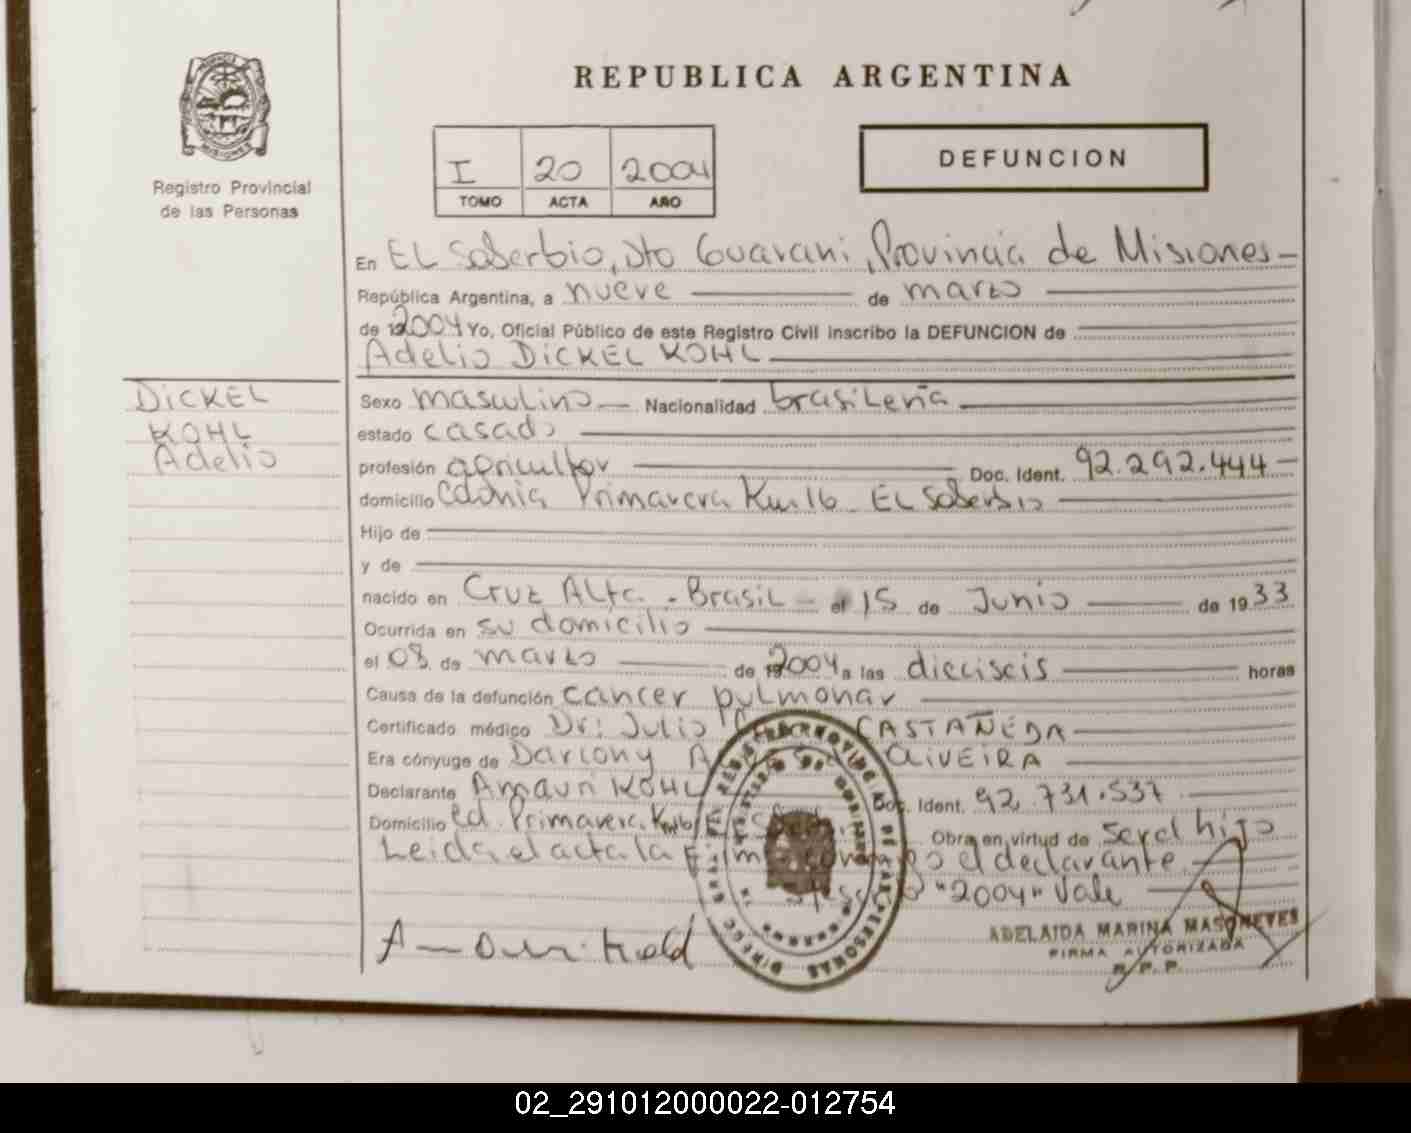 REPUBLICA ARGENTINA
Registro Provincial
de las Personas
I 20 2004
TOMO ACTA AÑO
DEFUNCION
En El Soberbio, Dto Guarani, Provincia de Misiones
República Argentina, a nueve de marzo
de 2004 Yo, Oficial Público de este Registro Civil inscribo la DEFUNCION de
Adelio DICKEL KOHL
DICKEL
KOHL
Adelio
Sexo masculino Nacionalidad brasileña
estado casado
profesión agricultor Doc. Ident. 92.292.444
domicilio Colonia Primavera Km 16 El Soberbio
Hijo de
y de
nacido en Cruz Alta - Brasil el 15 de Junio de 1933
Ocurrida en su domicilio
el 08 de marzo de 2004 a las dieciseis horas
Causa de la defunción cancer pulmonar
Certificado médico Dr: Julio CASTAÑEDA
Era cónyuge de Dariony OLIVEIRA
Declarante Amauri KOHL Doc. Ident. 92.731.537
Domicilio Primavera Km 16 Obra en virtud de ser el hijo
Leida el acta la el declarante
"2004" Vale
ADELAIDA MARINA MASONEVES
FIRMA AUTORIZADA
R.P.P.
02_291012000022-012754